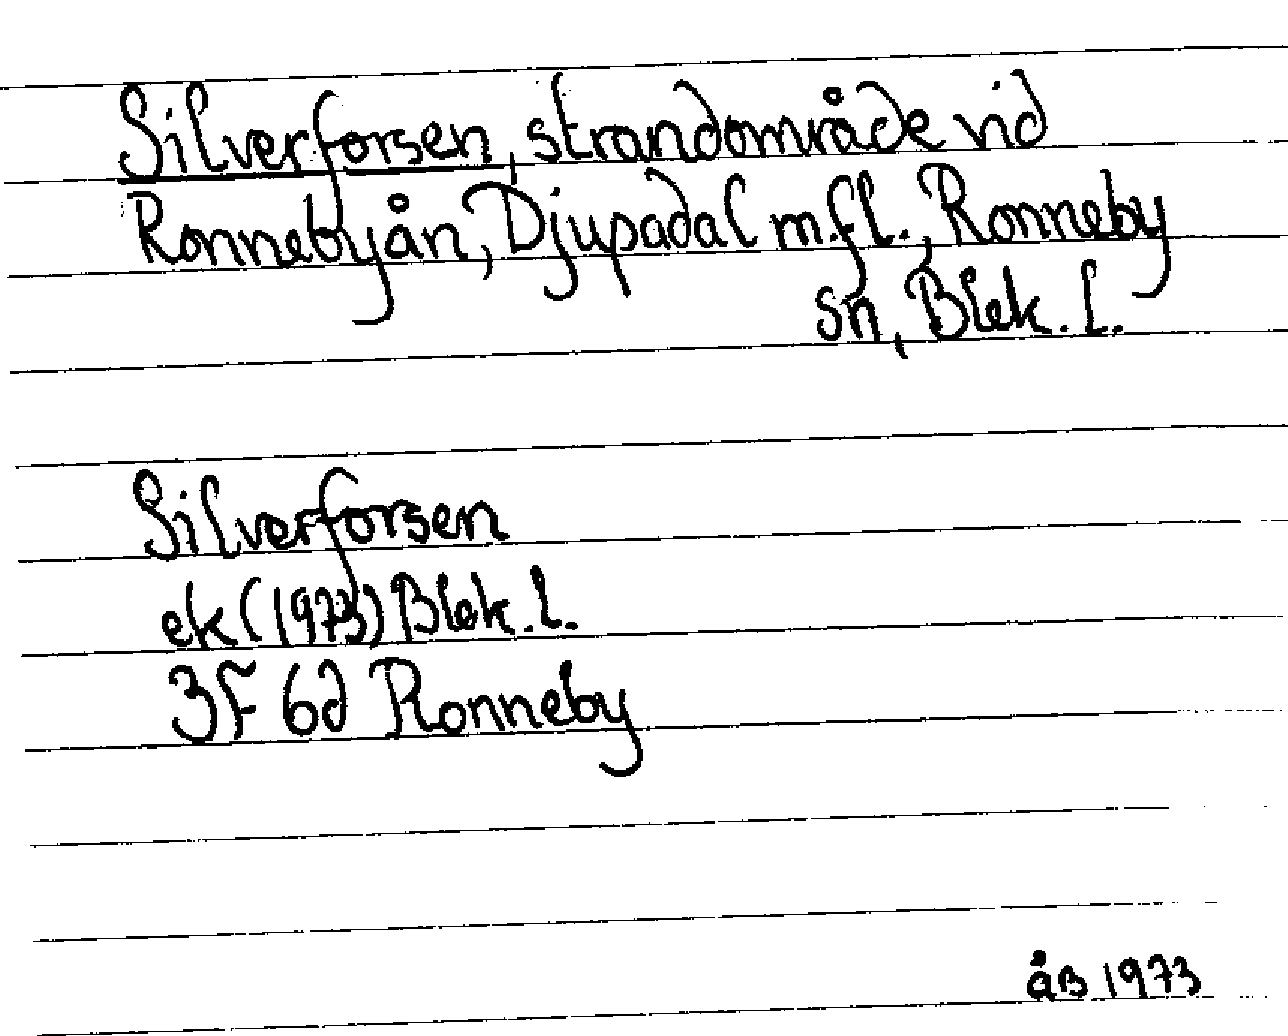 Silverforsen, strandområde vid
Ronnebyån, Djupadal m.fl., Ronneby
sn, Blek. l.
Silverforsen
ek (1973) Blek. l.
3F 6d Ronneby
åB 1973